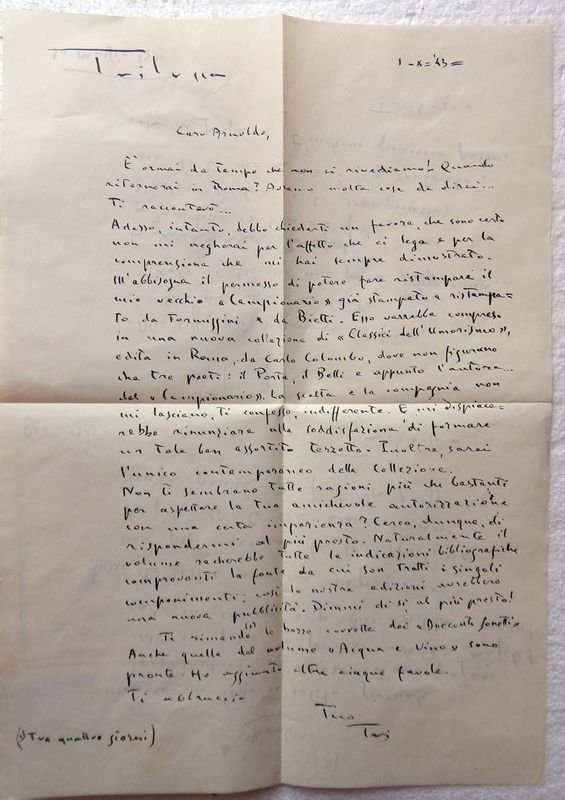 Trilussa
1-X-'43=
Caro Arnoldo,
È ormai da tempo che non ci rivediamo! Quando
ritornerai in Roma? Avremo molte cose da dirci...
Ti racconterò...
Adesso, intanto, debbo chiederti un favore, che sono certo
non mi negherai per l'affetto che ci lega e per la
comprensione che mi hai sempre dimostrato.
M'abbisogna il permesso di potere fare ristampare il
mio vecchio «Campionario» già stampato e ristampa=
to da Formiggini e da Bietti. Esso verrebbe compreso
in una nuova collezione di «Classici dell'Umorismo»,
edita in Roma, da Carlo Colombo, dove non figurano
che tre poeti: il Porta, il Belli e appunto l'autore...
del «Campionario». La scelta e la compagnia non
mi lasciano, ti confesso, indifferente. E mi dispiace=
rebbe rinunziare alla soddisfazione di formare
un tale ben assortito terzetto. Inoltre, sarei
l'unico contemporaneo della Collezione.
Non ti sembrano tutte ragioni più che bastanti
per aspettare la Tua amichevole autorizzazione
con una certa impazienza? Cerca, dunque, di
rispondermi al più presto. Naturalmente il
volume recherebbe tutte le indicazioni bibliografiche
comprovanti la fonte da cui son tratti i singoli
componimenti; così le nostre edizioni avrebbero
una nuova pubblicità. Dimmi di sì al più presto!
Ti rimando (1) le bozze corrette dei «Duecento Sonetti»
Anche quelle del volume «Acqua e Vino» sono
pronte. Ho aggiunto altre cinque favole.
Ti abbraccio
Tuo
Tri
(1) Tra quattro giorni)